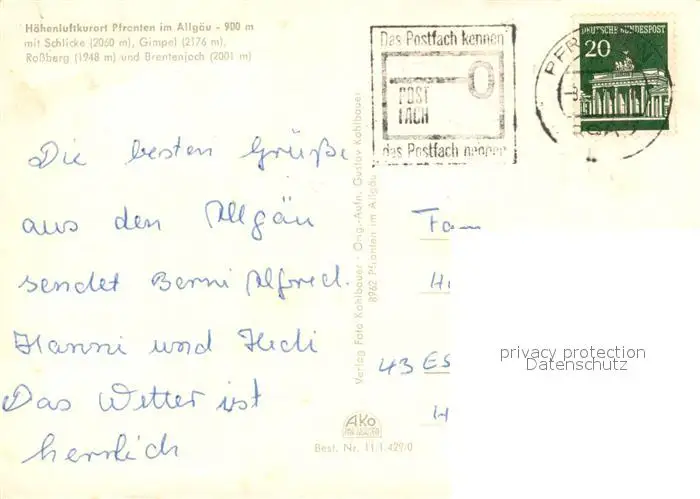 Höhenluftkurort Pfronten im Allgäu - 900 m
mit Schlicke (2060 m), Gimpel (2176 m),
Roßberg (1948 m) und Brentenjoch (2001 m)
Das Postfach kennen
POST
FACH
das Postfach nehmen
DEUTSCHE BUNDESPOST
20
PFR
Die besten Grüße
aus dem Allgäu
sendet Berni Alfred.
Hanni und Hedi
Das Wetter ist
herrlich
Verlag Foto Kohlbauer - Orig.-Aufn. Gustav Kohlbauer
8962 Pfronten im Allgäu
Fam
H
43 Es
H
AKO
Best. Nr. 11 1 429/0
privacy protection
Datenschutz